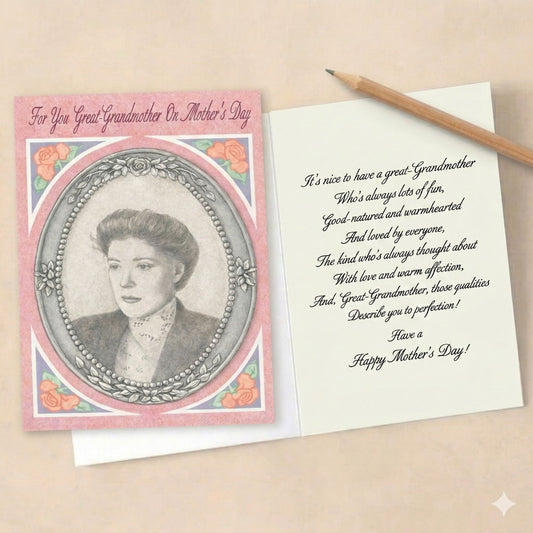 For You Great-Grandmother On Mother's Day
It's nice to have a great-Grandmother
Who's always lots of fun,
Good-natured and warmhearted
And loved by everyone,
The kind who's always thought about
With love and warm affection,
And, Great-Grandmother, those qualities
Describe you to perfection!
Have a
Happy Mother's Day!